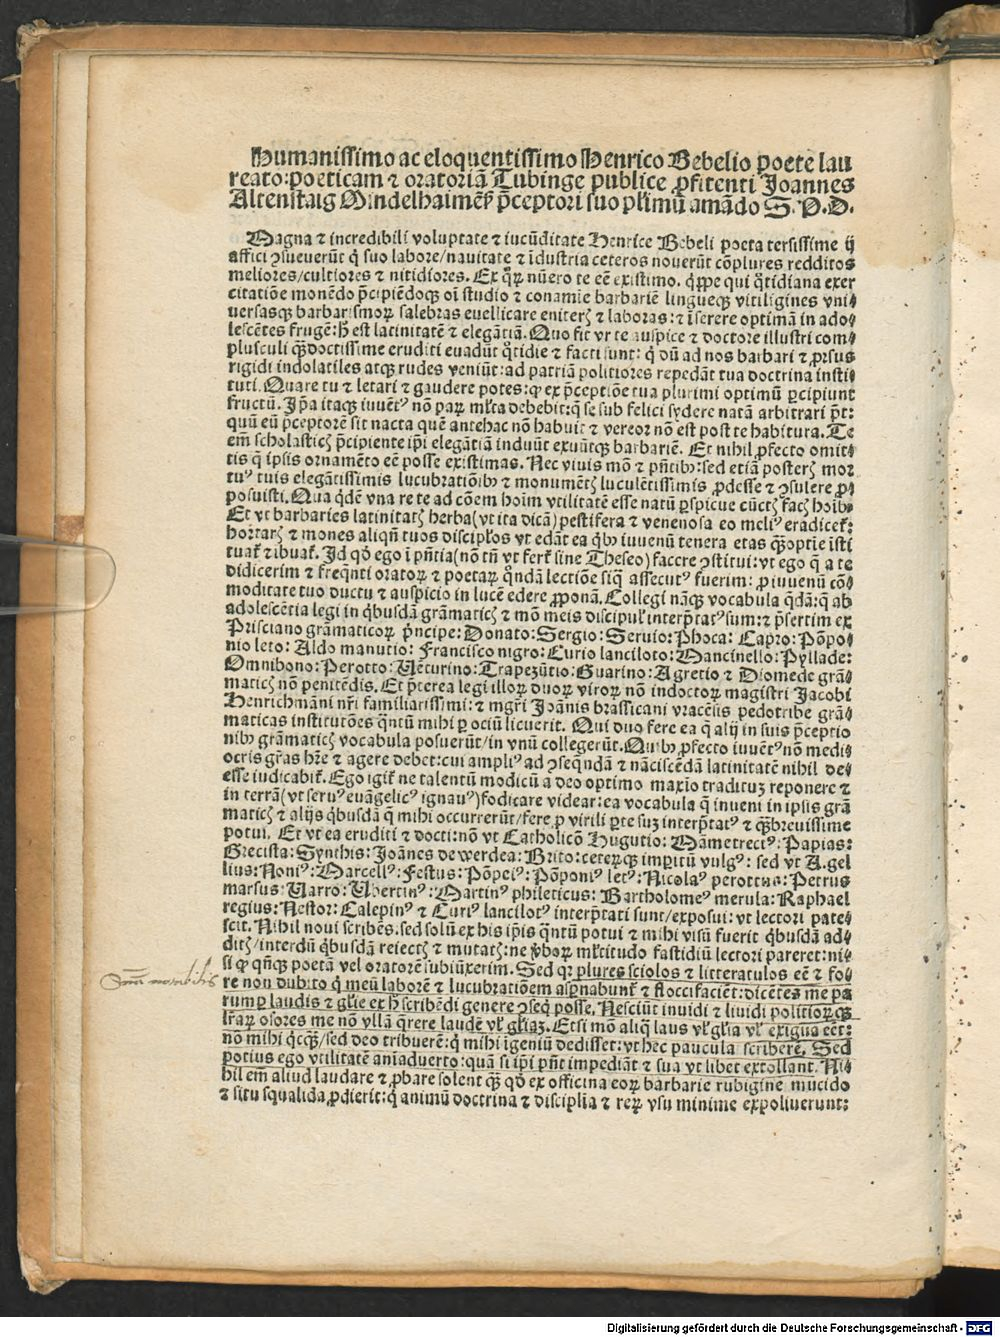 Humanissimo ac eloquentissimo Henrico Bebelio poete lau
reato: poeticam ⁊ oratoriā Tubinge publice ꝓfitenti Joannes
Altenstaig Mindelhaimēs̄ p̄ceptori suo plr̄imū amādo S. P. D.
Magna ⁊ incredibili voluptate ⁊ iucūditate Henrice Bebeli poeta tersissime ij
affici ꝯsueuerūt q̇ suo labore/nauitate ⁊ īdustria ceteros nouerūt cōplures redditos
meliores/cultiores ⁊ nitidiores. Ex q̇ꝝ nūero te eē existimo. q̇ppe qui q̄tidiana exer
citatiōe monēdo p̄cipiēdoqꝫ oī studio ⁊ conamie barbariē lingueqꝫ vitiligines vni⸗
uersasqꝫ barbarismoꝝ salebras euellicare eniterꝭ ⁊ laboras: ⁊ īserere optimā in ado⸗
lescētes frugē: h̄ est latinitatē ⁊ elegātiā. Quo fit vt te auspice ⁊ doctore illustri com⸗
plusculi qꝫdoctissime eruditi euadūt q̄tidie ⁊ facti sunt: q̇ dū ad nos barbari ⁊ ꝓrsus
rigidi indolatiles atqꝫ rudes veniūt: ad patriā politiores repedāt tua doctrina insti⸗
tuti. Quare tu ⁊ letari ⁊ gaudere potes: ꝙ ex p̄ceptiōe tua plurimi optimū ꝑcipiunt
fructū. Ip̄a itaqꝫ iuuētꝰ nō paꝝ ml̄ta debebit: q̄ se sub felici sydere natā arbitrari p̄t:
quū eū p̄ceptorē sit nacta quē antehac nō habuit ⁊ vereor nō est post te habitura. Te
em̄ scholasticꝭ p̄cipiente ip̄i elegātiā induūt exuūtqꝫ barbariē. Et nihil ꝓfecto omit⸗
tis q̄ ipsis ornamēto eē posse existimas. Nec viuis mō ⁊ p̄ntibꝫ: sed etiā posterꝭ mor
tuꝰ tuis elegātissimis lucubratiōibꝫ ⁊ monumētꝭ luculētissimis ꝓdesse ⁊ ꝯsulere ꝓ⸗
posuisti. Qua q̇dē vna re te ad cōem hoīm vtilitatē esse natū ꝑspicue cūctꝭ facꝭ hoībꝫ
Et vt barbaries latinitatꝭ herba (vt ita dicā) pestifera ⁊ venenosa eo meliꝰ eradicet̄:
hortarꝭ ⁊ mones aliqn̄ tuos discipl̄os vt edāt ea q̇bꝫ iuuenū tenera etas qꝫoptīe īsti
tuat̄ ⁊ ībuat̄. Id qd̄ ego ī p̄ntia (nō tn̄ vt fert̄ sine Theseo) facere ꝯstitui: vt ego q̄ a te
didicerim ⁊ freq̄nti oratoꝝ ⁊ poetaꝝ q̄ndā lectiōe siq̄ assecutꝰ fuerim: ꝓ iuuenū cō⸗
moditate tuo ductu ⁊ auspicio in lucē edere ꝓponā. Collegi nāqꝫ vocabula q̄dā: q̄ ab
adolescētia legi in q̇busdā grāmaticꝭ ⁊ mō meis discipul̄ interp̄tatꝰ sum: ⁊ p̄sertim ex
Prisciano grāmaticoꝝ p̄ncipe: Donato: Sergio: Seruio: Phoca: Capro: Pōpo⸗
nio leto: Aldo manutio: Francisco nigro: Curio lanciloto: Mancinello: Pyllade:
Omnibono: Perotto: Vēturino: Trapezūtio: Guarino: Agretio ⁊ Diomede grā⸗
maticꝭ nō penitēdis. Et p̄terea legi illoꝝ duoꝝ viroꝝ nō indoctoꝝ magistri Jacobi
Henrichmāni nr̄i familiarissimi: ⁊ mgr̄i Joānis brassicani vracēsis pedotribe grā⸗
maticas institutōes q̄ntū mihi ꝑ ociū licuerit. Qui duo fere ea q̄ alij in suis p̄ceptio
nibꝫ grāmaticꝭ vocabula posuerūt/in vnū collegerūt. Quibꝫ ꝓfecto iuuētꝰ nō medi⸗
ocris gr̄as hr̄e ⁊ agere debet: cui ampliꝰ ad ꝯseq̄ndā ⁊ nāciscēdā latinitatē nihil de⸗
esse iudicabit̄. Ego igit̄ ne talentū modicū a deo optimo maxīo traditū reponere ⁊
in terrā (vt seruꝰ euāgelicꝰ ignauꝰ) fodicare videar: ea vocabula q̄ inueni in ipsis grā
maticꝭ ⁊ alijs q̇busdā q̄ mihi occurrerūt/fere ꝓ virili ꝑte suꝫ interp̄tatꝰ ⁊ qꝫbreuissime
potui. Et vt ea eruditi ⁊ docti: nō vt Catholicō Hugutio: Māmetrectꝰ: Papias:
Grecista: Synthis: Joānes de werdea: Brito: ceterqꝫ imꝑitū vulgꝰ: sed vt A. gel
lius: Noniꝰ: Marcellꝰ: Festus: Pōpeiꝰ: Pōponiꝰ letꝰ: Nicolaꝰ perottus: Petrus
marsus: Varro: Vbertinꝰ: Martinꝰ phileticus: Bartholomeꝰ merula: Raphael
regius: Nestor: Calepinꝰ ⁊ Curiꝰ lancilotꝰ interp̄tati sunt/exposui: vt lectori pate⸗
scit. Nihil noui scribēs: sed solū ex his ip̄is q̄ntū potui ⁊ mihi visū fuerit q̇busdā ad⸗
ditꝭ/interdū q̇busdā reiectꝭ ⁊ mutatꝭ: ne v̄boꝝ ml̄titudo fastidiū lectori pareret: ni⸗
si ꝙ qn̄qꝫ poetā vel oratorē subiūxerim. Sed qꝛ plures sciolos ⁊ litteratulos eē ⁊ fo⸗
re non dubito q̇ meū laborē ⁊ lucubratiōem aspnabunt̄ ⁊ floccifaciēt: dicētes me pa
rum ꝑ laudis ⁊ gl̄ie ex h̄ scribēdi genere ꝯseq̇ posse. Nesciūt inuidi ⁊ liuidi politioꝝqꝫ
lr̄aꝝ osores me nō vllā q̄rere laudē vl̄ gl̄iaꝫ. Etsi mō aliq̄ laus vl̄ gl̄ia vl̄ exigua eēt:
nō mihi q̇cqꝫ/sed deo tribuerē: q̇ mihi īgeniū dedisset: vt hec paucula scriberē. Sed
potius ego vtilitatē aniaduerto: quā si ip̄i p̄nt impediāt ⁊ sua vt libet extollant. Ni⸗
hil em̄ aliud laudare ⁊ ꝓbare solent qꝫ qd̄ ex officina eoꝝ barbarie rubigine mucido
⁊ situ squalida ꝓdierit: q̇ animū doctrina ⁊ disciplīa ⁊ reꝝ vsu minime expoliuerunt:
Digitalisierung gefördert durch die Deutsche Forschungsgemeinschaft - DFG